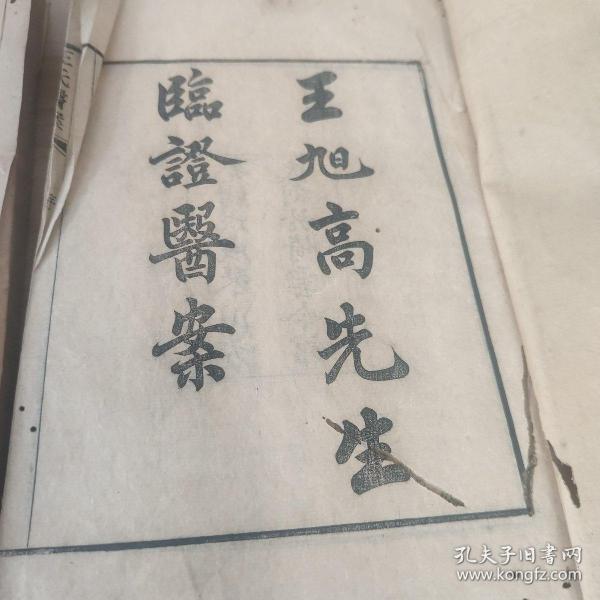 王旭高先生
臨證醫案
孔夫子旧书网
www.kongfz.com